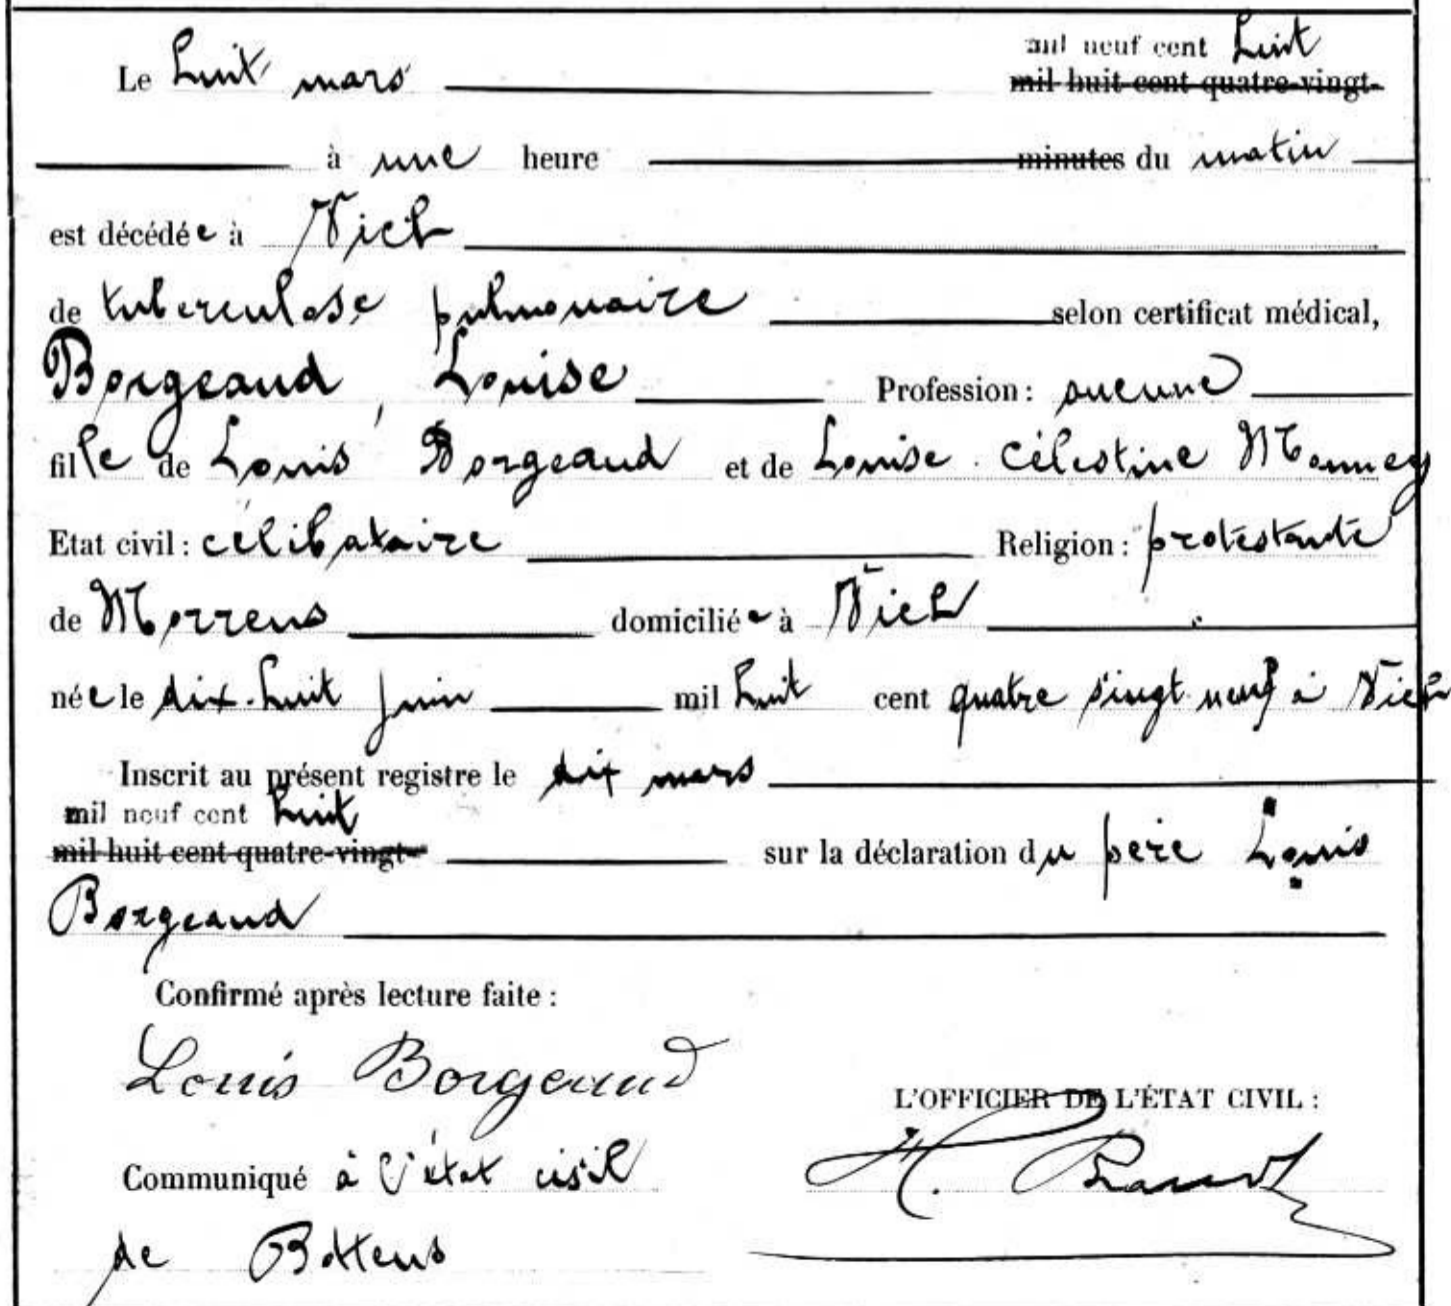 mil neuf cent huit
Le huit mars mil huit cent quatre-vingt-
à une heure minutes du matin
est décédée à Vich
de tuberculose pulmonaire selon certificat médical,
Borgeaud, Louise Profession : aucune
fille de Louis Borgeaud et de Louise Célestine Monney
Etat civil : célibataire Religion : protestante
de Morrens domiciliée à Vich
née le dix-huit juin mil huit cent quatre vingt neuf à Vich
Inscrit au présent registre le dix mars
mil neuf cent huit
mil huit cent quatre-vingt- sur la déclaration du père Louis
Borgeaud
Confirmé après lecture faite :
Louis Borgeaud
L'OFFICIER DE L'ÉTAT CIVIL :
Communiqué à l'état civil H.
de Bottens